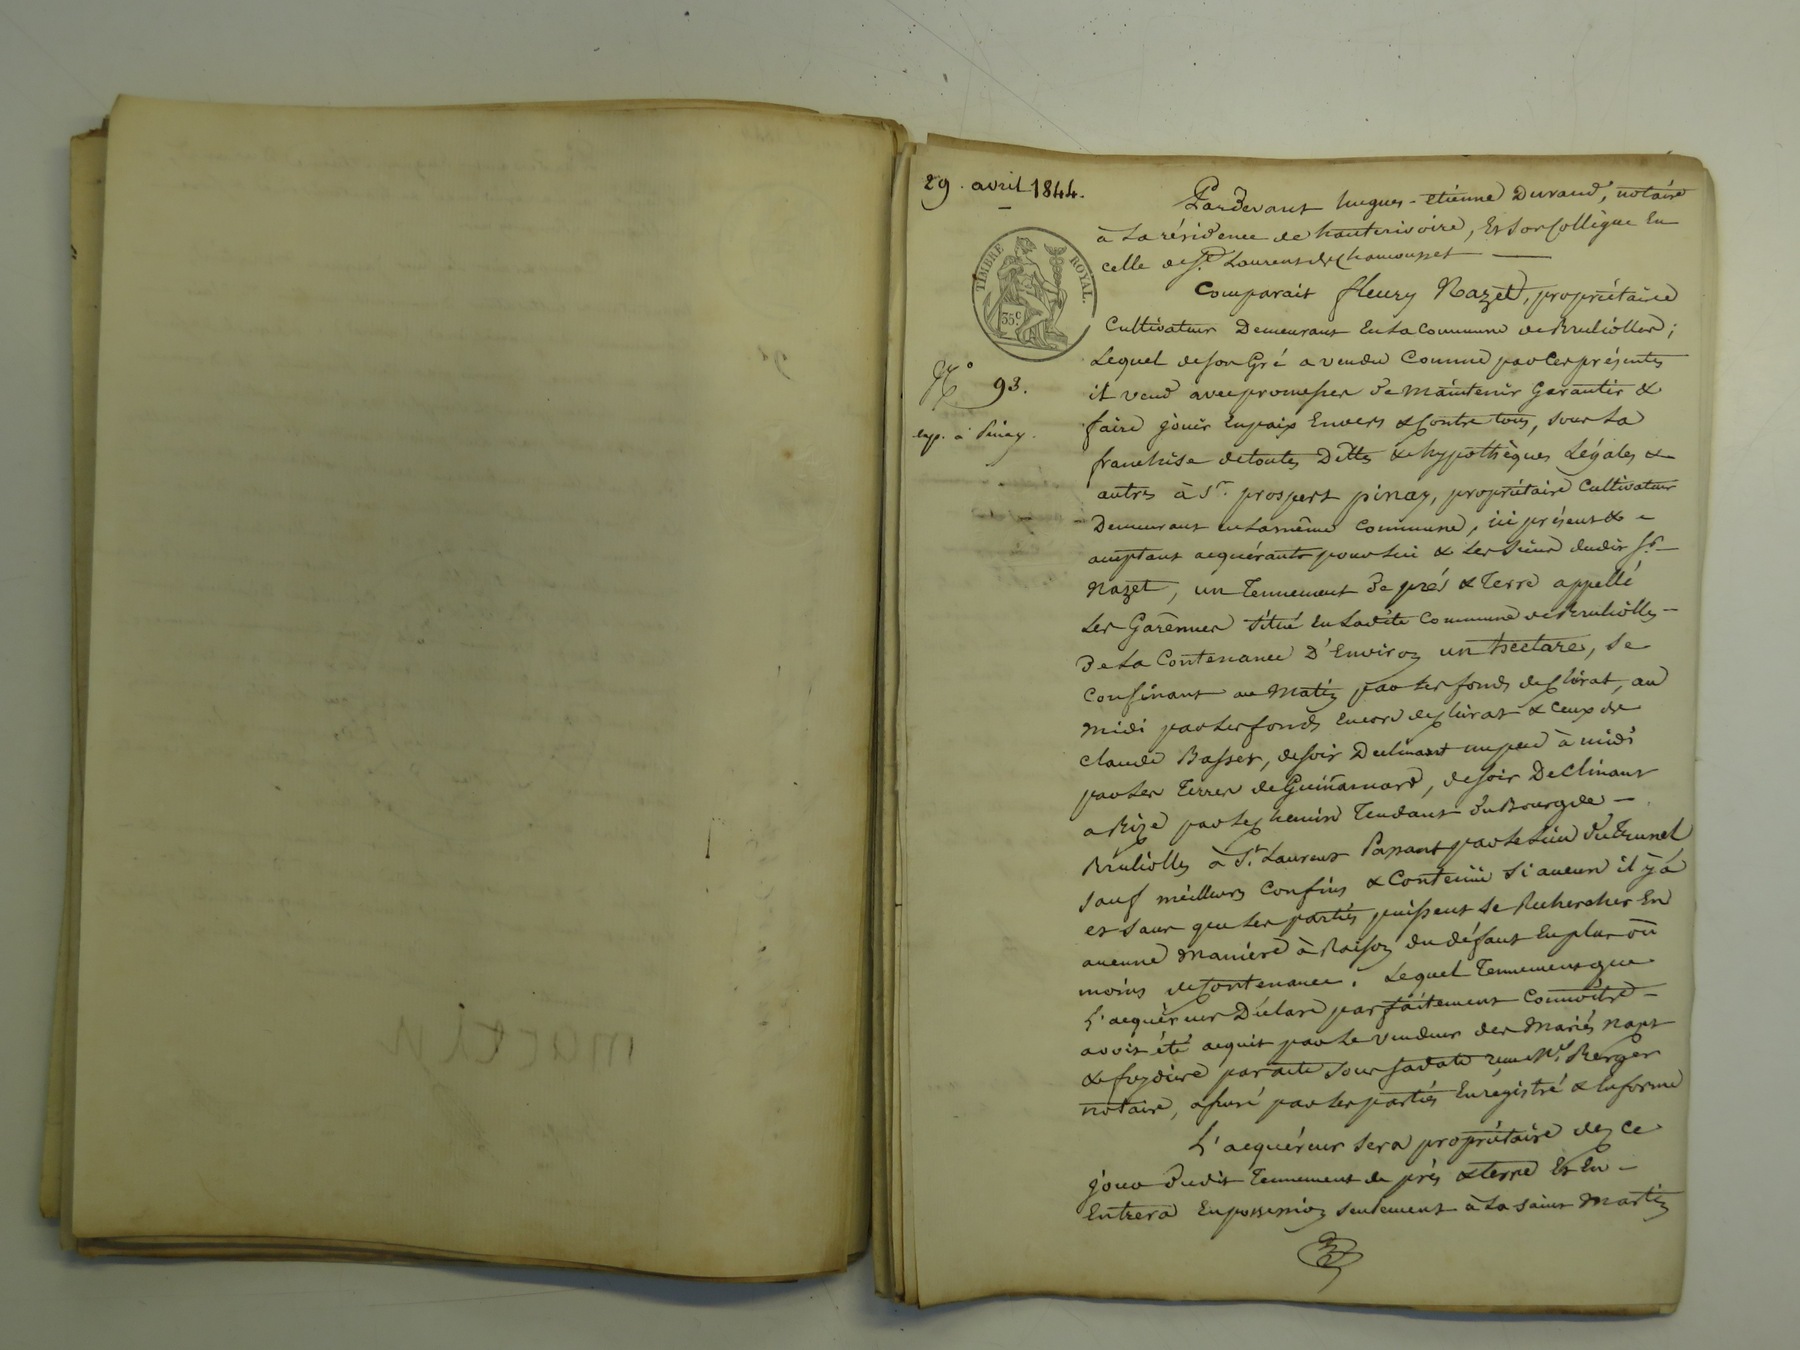 29. avril 1844.
TIMBRE ROYAL.
35 c
N.° 93.
exp. à Pinay.
Pardevant hugues-etiénne Durand, notaire
à La résidence de hauterivoire, Et Son Collègue En
celle de St. Laurent de Chamousset —
Comparait fleury Nazet, propriétaire
Cultivateur Demeurant En La Commune de Brulioller;
Lequel de son Gré a vendu Comme par Ces présentes
it vend avec promesses de Maintenir Garantir &
faire jouir En paix Envers & Contre tous, sous La
franchise de toutes Dettes & hypothèques Légales &
autres à Sr. prospert pinay, propriétaire Cultivateur
Demeurant en La même Commune, ici présent & -
acceptant acquérant pour Lui & Les Siens dudit Sr. -
Nazet, un Tennement de prés & Terre appellé
Les Garênnes Situé En Ladite Commune de Bruliolles -
De La Contenance D'Environ un hectare, se
Confinant au Matin par Les fonds de Clivrat, au
Midi par Les fonds Encore de Clivrat & Ceux de
Claude Basset, de soir Declinant un peu à midi
par Les Terres de Guinamard, de soir Declinant
a Bize par Le Chemin Tendant du Bourg de -
Bruliolles à St. Laurent Passant par Le Lieu du Trunel
Sauf meilleurs Confins & Contenue Si aucun il y a
et Sans que Les parties puissent Se Rechercher En
aucune Manière à Raison du défaut En plus ou
moins de Contenance. Lequel Tennement que
L'acquéreur Déclare parfaitement Connoître -
avoir été acquit par Le Vendeur des Mariés
& par acte sous sa date reçu Me. Berger
notaire, assuré par Les parties Enrégistré & En forme
L'acquéreur sera propriétaire dez Ce
jour dudit Tennement de prés & terre Et En -
Entrera En possession seulement à La Saint Martin
martin